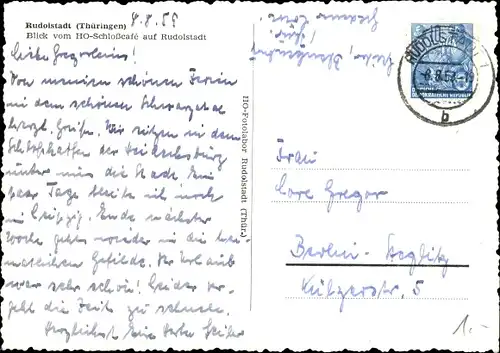 Rudolstadt (Thüringen) 8.8.55
Blick vom HO-Schloßcafé auf Rudolstadt
Von meinen schönen Ferien
in dem schönen Schwarzatal
herzl. Grüße. Wir sitzen in dem
Schloßkaffee der Heidecksburg
unter uns die Stadt. Ein
paar Tage bleibe ich noch
in Leipzig. Ende nächster
Woche geht's wieder in die hei-
matlichen Gefilde. Der Urlaub
war sehr schön! Leider ver-
geht die Zeit zu schnell.
Herzlichst Eure
HO-Fotolabor Rudolstadt (Thür.)
RUDOLSTADT 1
b
Frau
Lore Gregor
Berlin-Steglitz
5
1.-